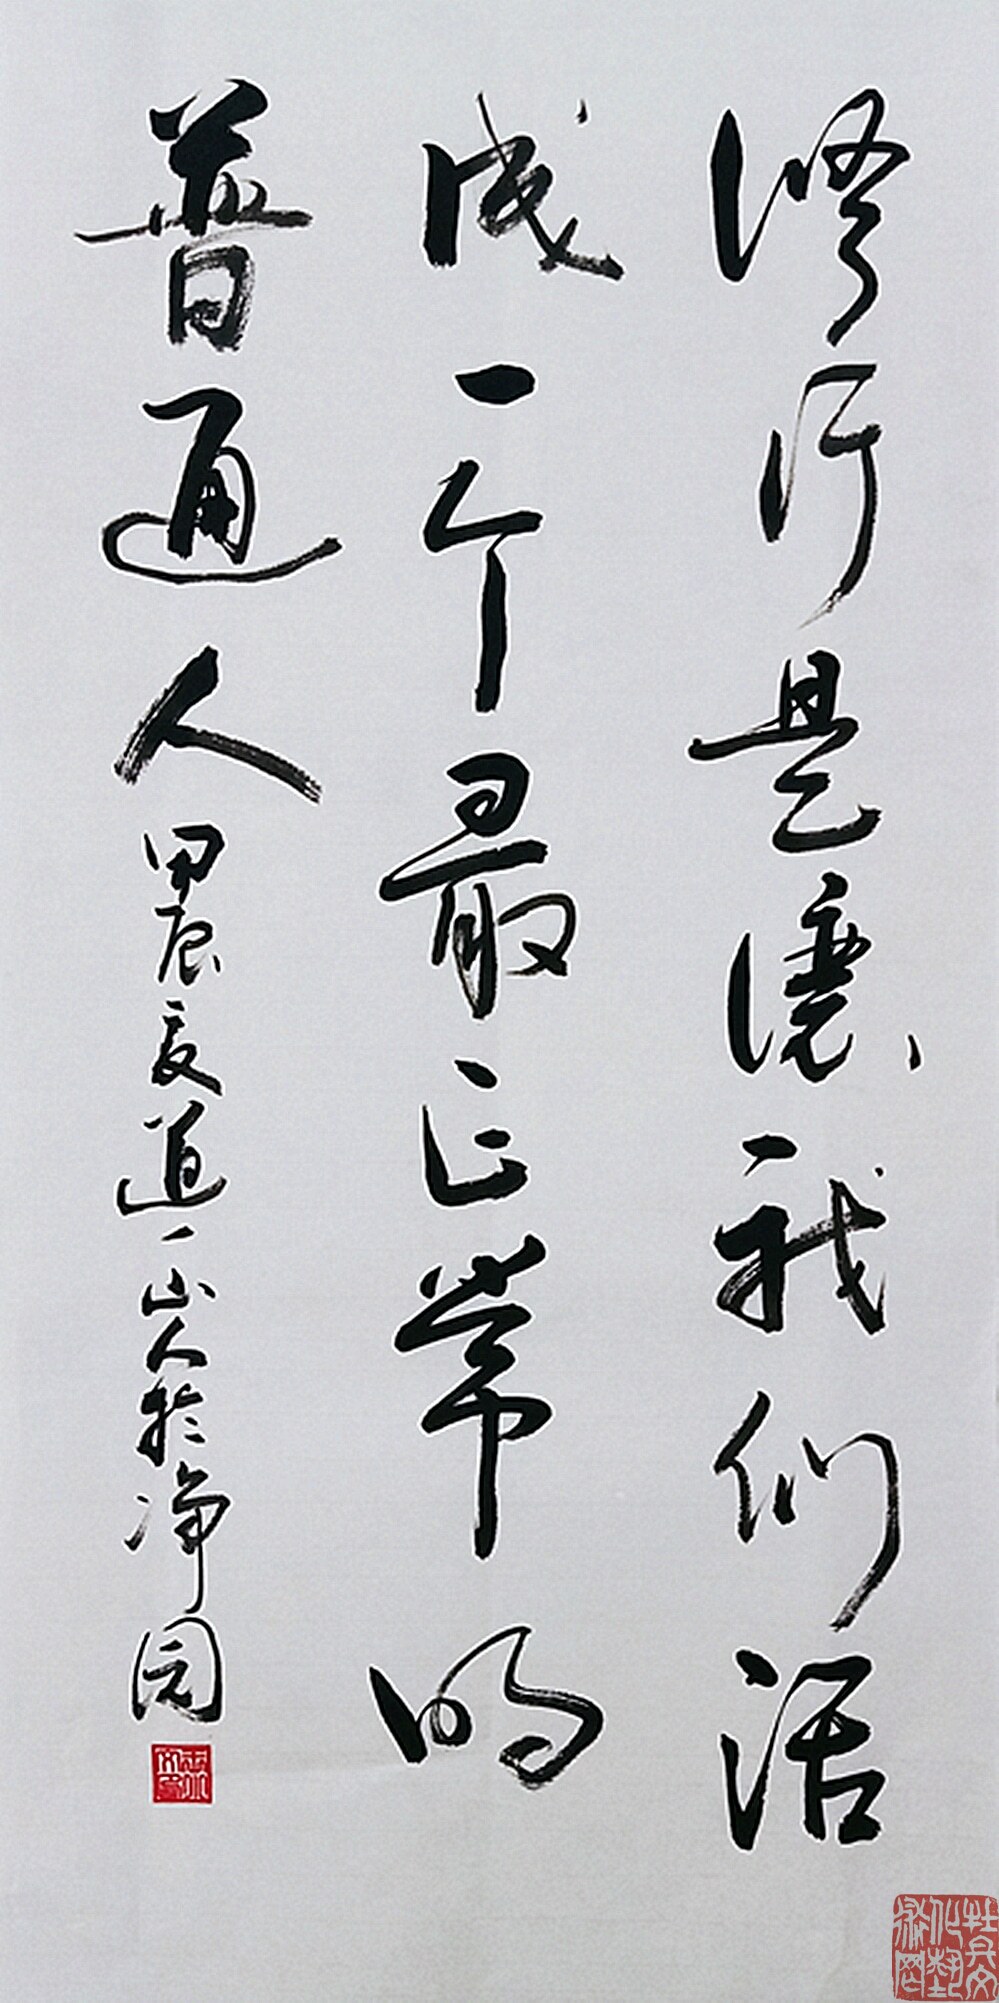 修行是讓我们活
成一个最正常的
普通人
甲辰夏道一山人於净园